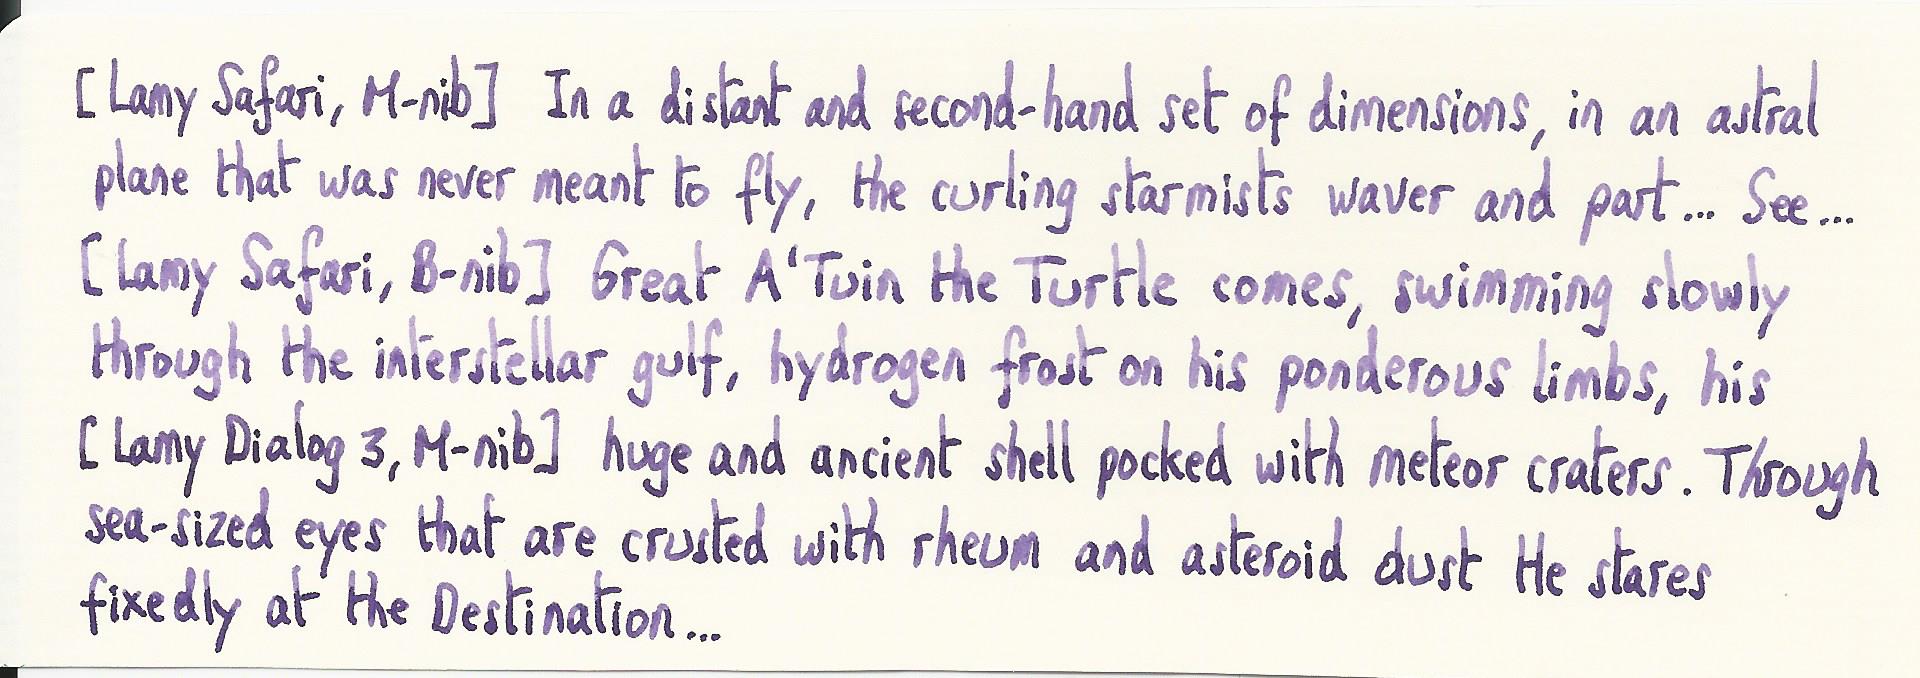 [Lamy Safari, M-nib] In a distant and second-hand set of dimensions, in an astral
plane that was never meant to fly, the curling starmists waver and part... See...
[Lamy Safari, B-nib] Great A'Tuin the Turtle comes, swimming slowly
through the interstellar gulf, hydrogen frost on his ponderous limbs, his
[Lamy Dialog 3, M-nib] huge and ancient shell pocked with meteor craters. Through
sea-sized eyes that are crusted with rheum and asteroid dust He stares
fixedly at the Destination...